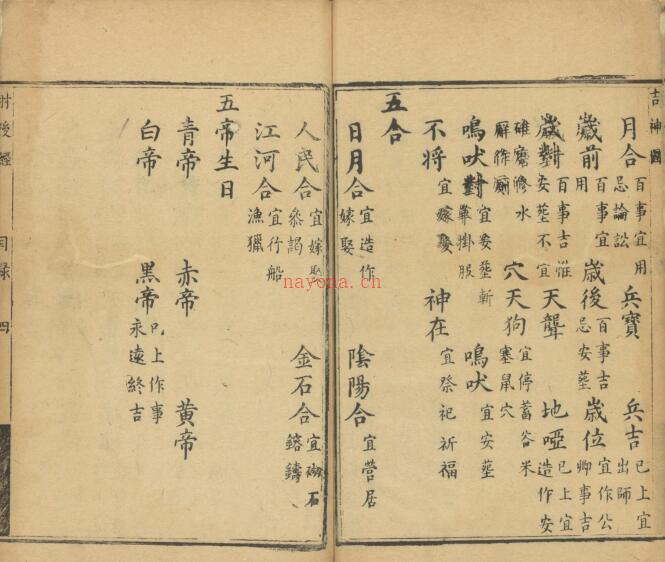 吉神圖
月合 百事宜用 忌論訟 兵寶 兵吉 已上宜出師
歲前 百事宜用 歲後 百事吉 忌安塟 歲位 宜作公卿事吉
歲對 百事吉惟安塟不宜 天聾 地啞 已上宜造作安
碓磨修水 穴天狗 宜停蓄谷米塞鼠穴
廨作廁
鳴吠對 宜安塟斬草掛服 鳴吠 宜安塟
不将 宜嫁娶 神在 宜祭祀祈福
五合
日月合 宜造作嫁娶 陰陽合 宜營居
人民合 宜嫁娶叅謁 金石合 宜砌石鎔鑄
江河合 宜行船漁獵
五帝生日
青帝 赤帝 黄帝
白帝 黑帝 已上作事永遠終吉
肘後經 目录 四
nayona.cn